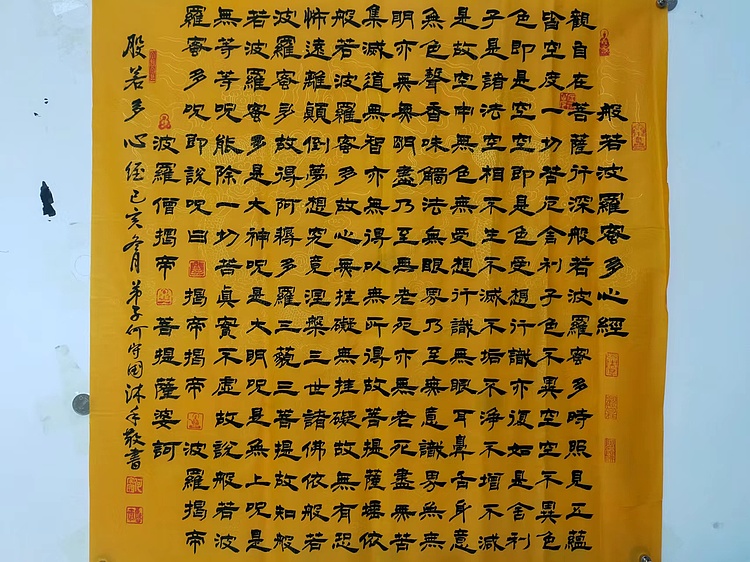 般若波羅蜜多心經
觀自在菩薩行深般若波羅蜜多時照見五蘊
皆空度一切苦厄舍利子色不異空空不異色
色即是空空即是色受想行識亦復如是舍利
子是諸法空相不生不滅不垢不淨不增不減
是故空中無色無受想行識無眼耳鼻舌身意
無色聲香味觸法無眼界乃至無意識界無無
明亦無無明盡乃至無老死亦無老死盡無苦
集滅道無智亦無得以無所得故菩提薩埵依
般若波羅蜜多故心無挂礙無挂礙故無有恐
怖遠離顛倒夢想究竟涅槃三世諸佛依般若
波羅蜜多故得阿耨多羅三藐三菩提故知般
若波羅蜜多是大神呪是大明呪是無上呪是
無等等呪能除一切苦真實不虛故說般若波
羅蜜多呪即說呪曰 揭帝揭帝 波羅揭帝
波羅僧揭帝 菩提薩婆訶
般若多心経 己亥冬月 弟子何守国沐手敬書